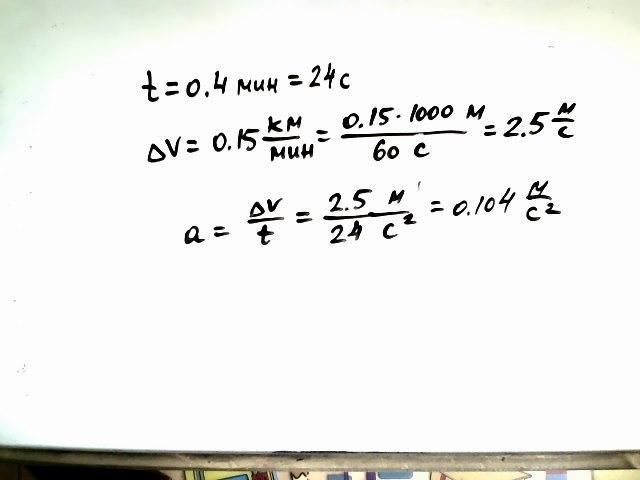 t = 0.4 мин = 24с
ΔV = 0.15 км/мин = 0.15 · 1000 м / 60 с = 2.5 м/с
a = ΔV/t = 2.5 м / 24 с² = 0.104 м/с²